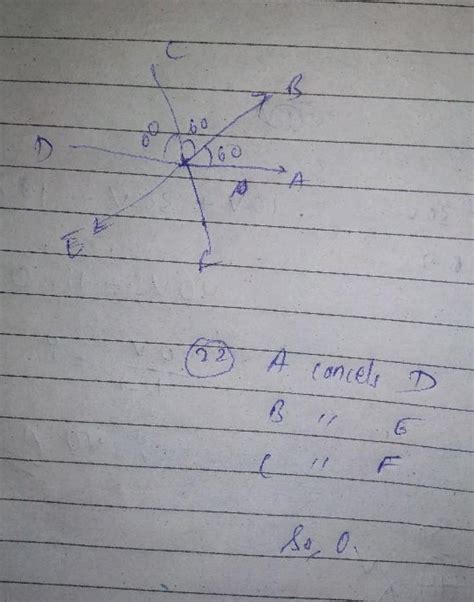 C
B
60 60 60
D
A
E
F
(22) A cancels D
B " E
C " F
So, 0.